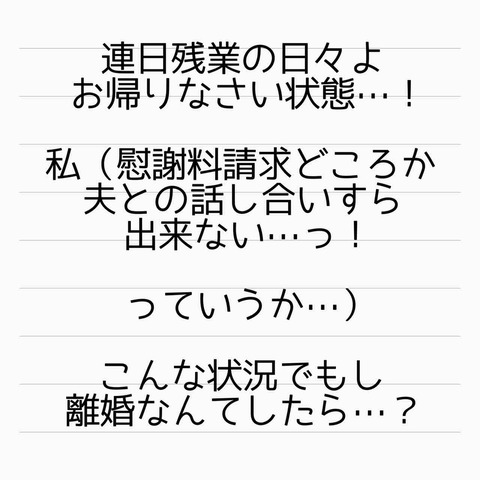 連日残業の日々よ
お帰りなさい状態…！
私（慰謝料請求どころか
夫との話し合いすら
出来ない…っ！
っていうか…）
こんな状況でもし
離婚なんてしたら…？